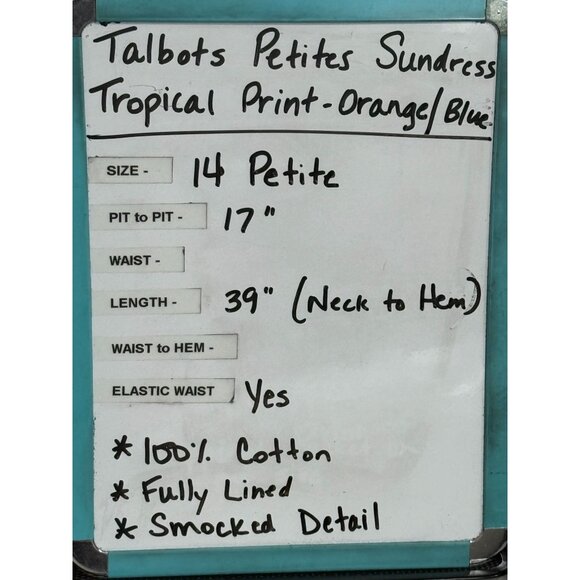 Talbots Petites Sundress
Tropical Print - Orange/Blue
SIZE - 14 Petite
PIT to PIT - 17"
WAIST -
LENGTH - 39" (Neck to Hem)
WAIST to HEM -
ELASTIC WAIST Yes
* 100% Cotton
* Fully Lined
* Smocked Detail